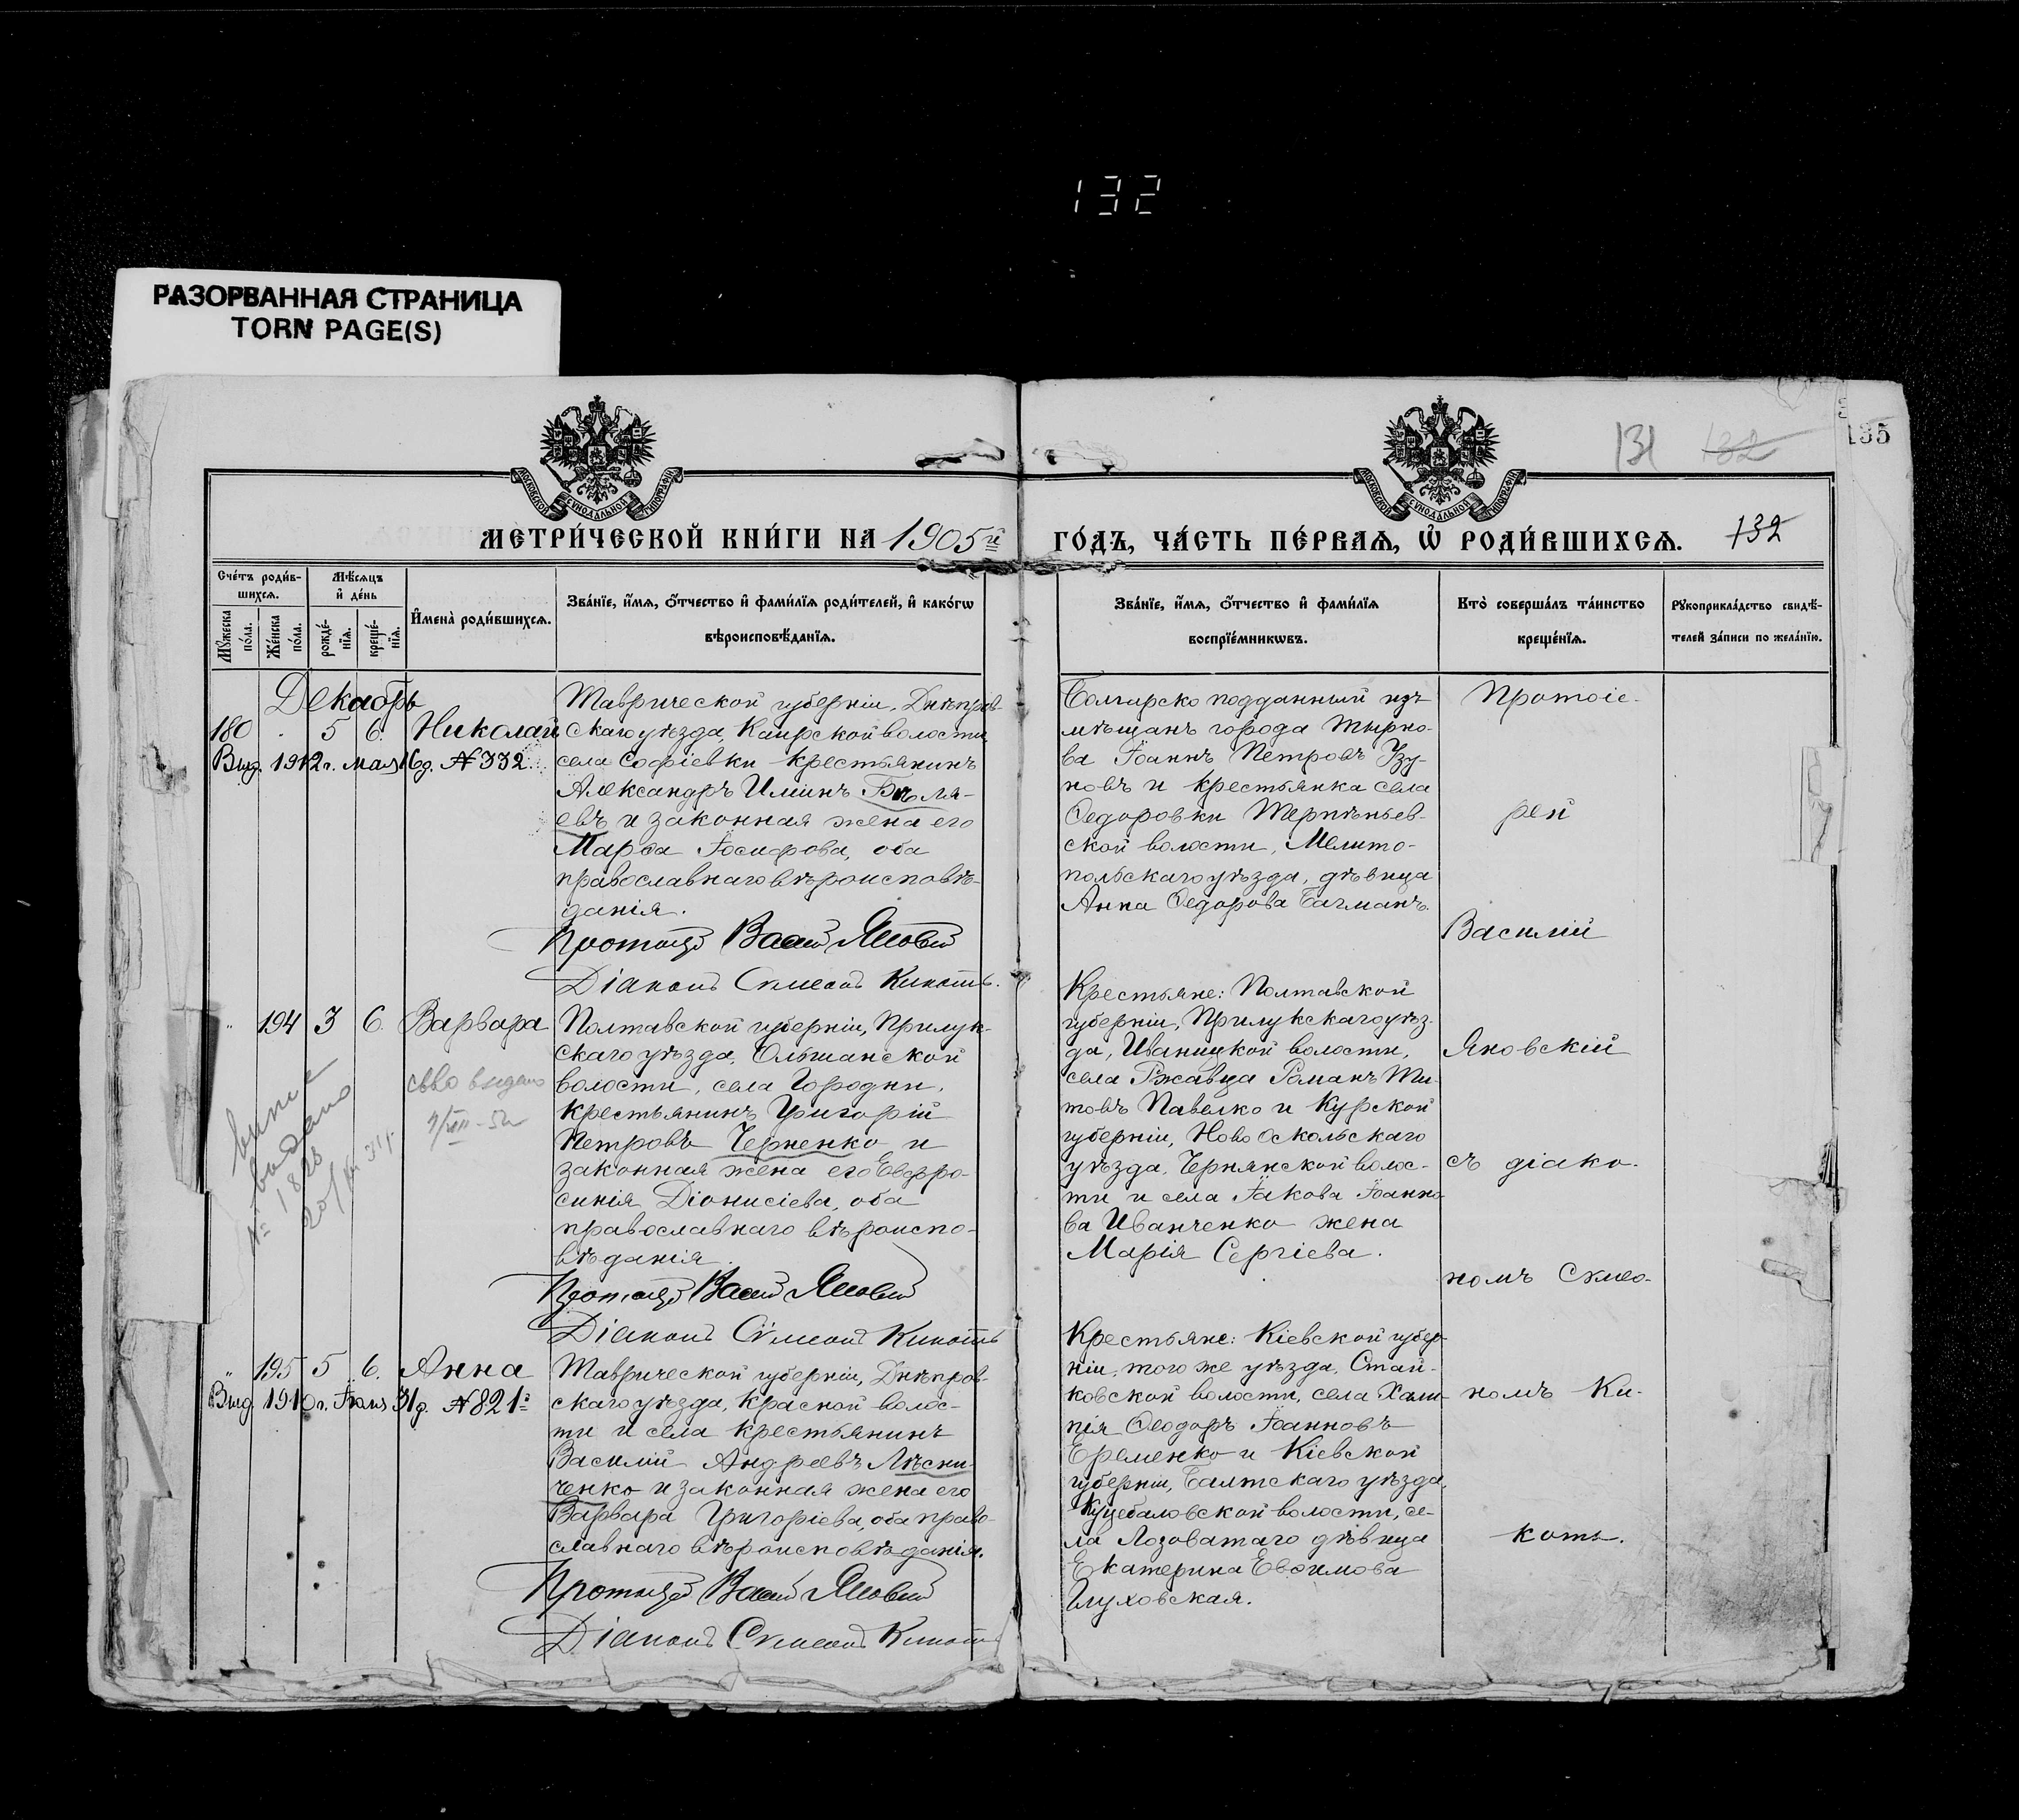 132
РАЗОРВАННАЯ СТРАНИЦА
TORN PAGE(S)
131 132
135
МОСКОВСКОЙ СѴНОДАЛЬНОЙ ТИПОГРАФІИ
МОСКОВСКОЙ СѴНОДАЛЬНОЙ ТИПОГРАФІИ
МЕТРИ́ЧЕСКОЙ КНИ́ГИ НА 1905й
ГО́ДЪ, ЧА́СТЬ ПЕ́РВАѦ, Ѡ҆ РОДИ́ВШИХСѦ. 132
Сче́тъ роди́в-
шихсѧ.
Мꙋ́жеска по́ла.
Же́нска по́ла.
Мѣ́сѧцъ
и҆ де́нь
рожде́-
нїѧ.
креще́-
нїѧ.
И҆мена̀ роди́вшихсѧ.
Зва́нїе, и҆́мѧ, ѻ҆́тчество и҆ фами́лїѧ роди́телей, и҆ како́гѡ
вѣроисповѣ́данїѧ.
Зва́нїе, и҆́мѧ, ѻ҆́тчество и҆ фами́лїѧ
воспрїе́мникѡвъ.
Кто̀ соверша́лъ та́инство
креще́нїѧ.
Рꙋкоприкла́дство свидѣ́-
телей за́писи по жела́нїю.
Декабрь
180 . 5 6. Николай
Выд. 1912 г. мая 16 д. № 332.
Таврической губерніи, Днѣпров-
скаго уѣзда, Каирской волости,
села Софіевки крестьянинъ
Александръ Илиинъ Бѣля-
евъ и законная жена его
Марѳа Іосифова, оба
православнаго вѣроисповѣ-
данія.
Протоіерей Василій Яновскій
Діаконъ Сѵмеонъ Кикоть.
Болгарско подданный изъ
мѣщанъ города Тырно-
ва Іоаннъ Петровъ Узу-
новъ и крестьянка села
Ѳедоровки Терпѣньев-
ской волости, Мелито-
польскаго уѣзда, дѣвица
Анна Ѳедорова Багманъ.
Протоіе-
рей
Василій
Яновскій
съ діако-
номъ Сѵмео-
номъ Ки-
коть.
" 194 3 6. Варвара
св-во выдано
выпис
выдано
№ 1828
Полтавской губерніи, Прилук-
скаго уѣзда, Ольшанской
волости, села Городни,
крестьянинъ Григорій
Петровъ Черненко и
законная жена его Евфро-
синія Діонисіева, оба
православнаго вѣроиспо-
вѣданія.
Протоіерей Василій Яновскій
Діаконъ Сѵмеонъ Кикоть
Крестьяне: Полтавской
губерніи, Прилукскаго уѣз-
да, Иваницкой волости,
села Ржавца Романъ Ти-
товъ Павелко и Курской
губерніи, Ново Оскольскаго
уѣзда, Чернянской волос-
ти и села Іакова Іоанно-
ва Иванченко жена
Марія Сергіева.
" 195 5 6. Анна
Выд. 1910 г. Іюня 31 д. № 821.
Таврической губерніи, Днѣпров-
скаго уѣзда, Красной волос-
ти и села крестьянинъ
Василій Андреевъ Лѣсни-
ченко и законная жена его
Варвара Григоріева, оба право-
славнаго вѣроисповѣданія.
Протоіерей Василій Яновскій
Діаконъ Сѵмеонъ Кикоть
Крестьяне: Кіевской губер-
ніи, того же уѣзда, Стай-
ковской волости, села Хали-
пія Ѳеодоръ Іоанновъ
Еременко и Кіевской
губерніи, Балтскаго уѣзда,
Куцебаловской волости, се-
ла Лозоватаго дѣвица
Екатерина Евѳимова
Глуховская.